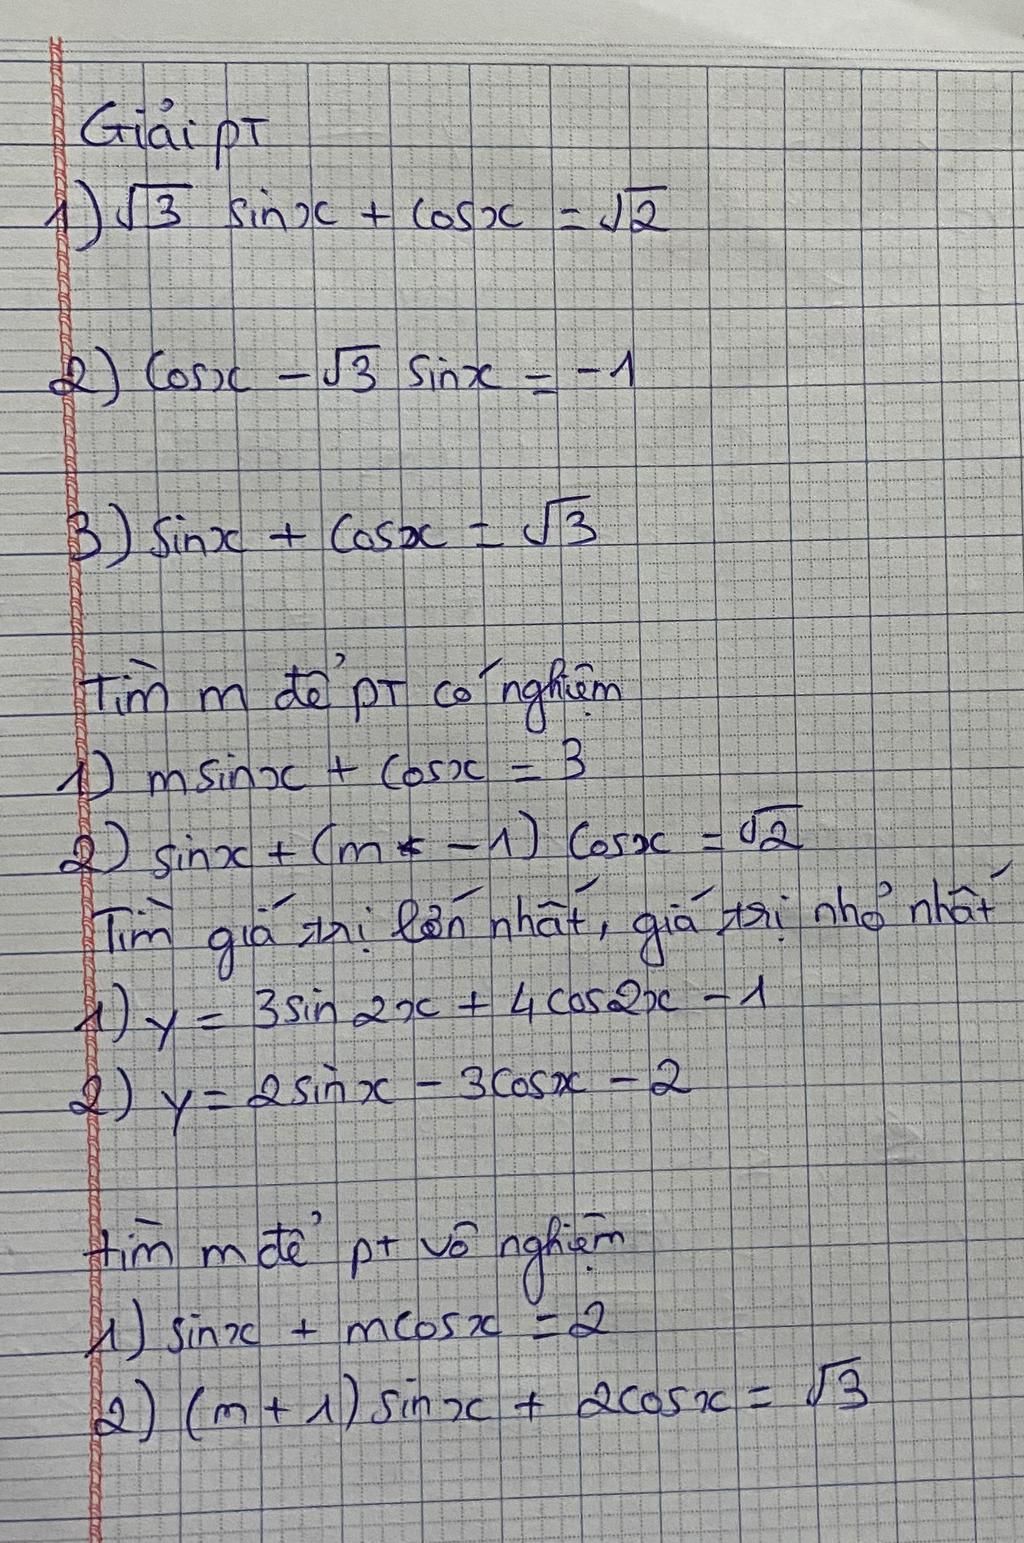 Giải pT
1) √3 sinx + cosx = √2
2) cosx - √3 sinx = -1
3) sinx + cosx = √3
Tìm m để pT có nghiệm
1) msinx + cosx = 3
2) sinx + (m - 1) cosx = √2
Tìm giá trị lớn nhất, giá trị nhỏ nhất
1) y = 3sin2x + 4cos2x - 1
2) y = 2sinx - 3cosx - 2
tìm m để pt vô nghiệm
1) sinx + mcosx = 2
2) (m + 1) sinx + 2cosx = √3